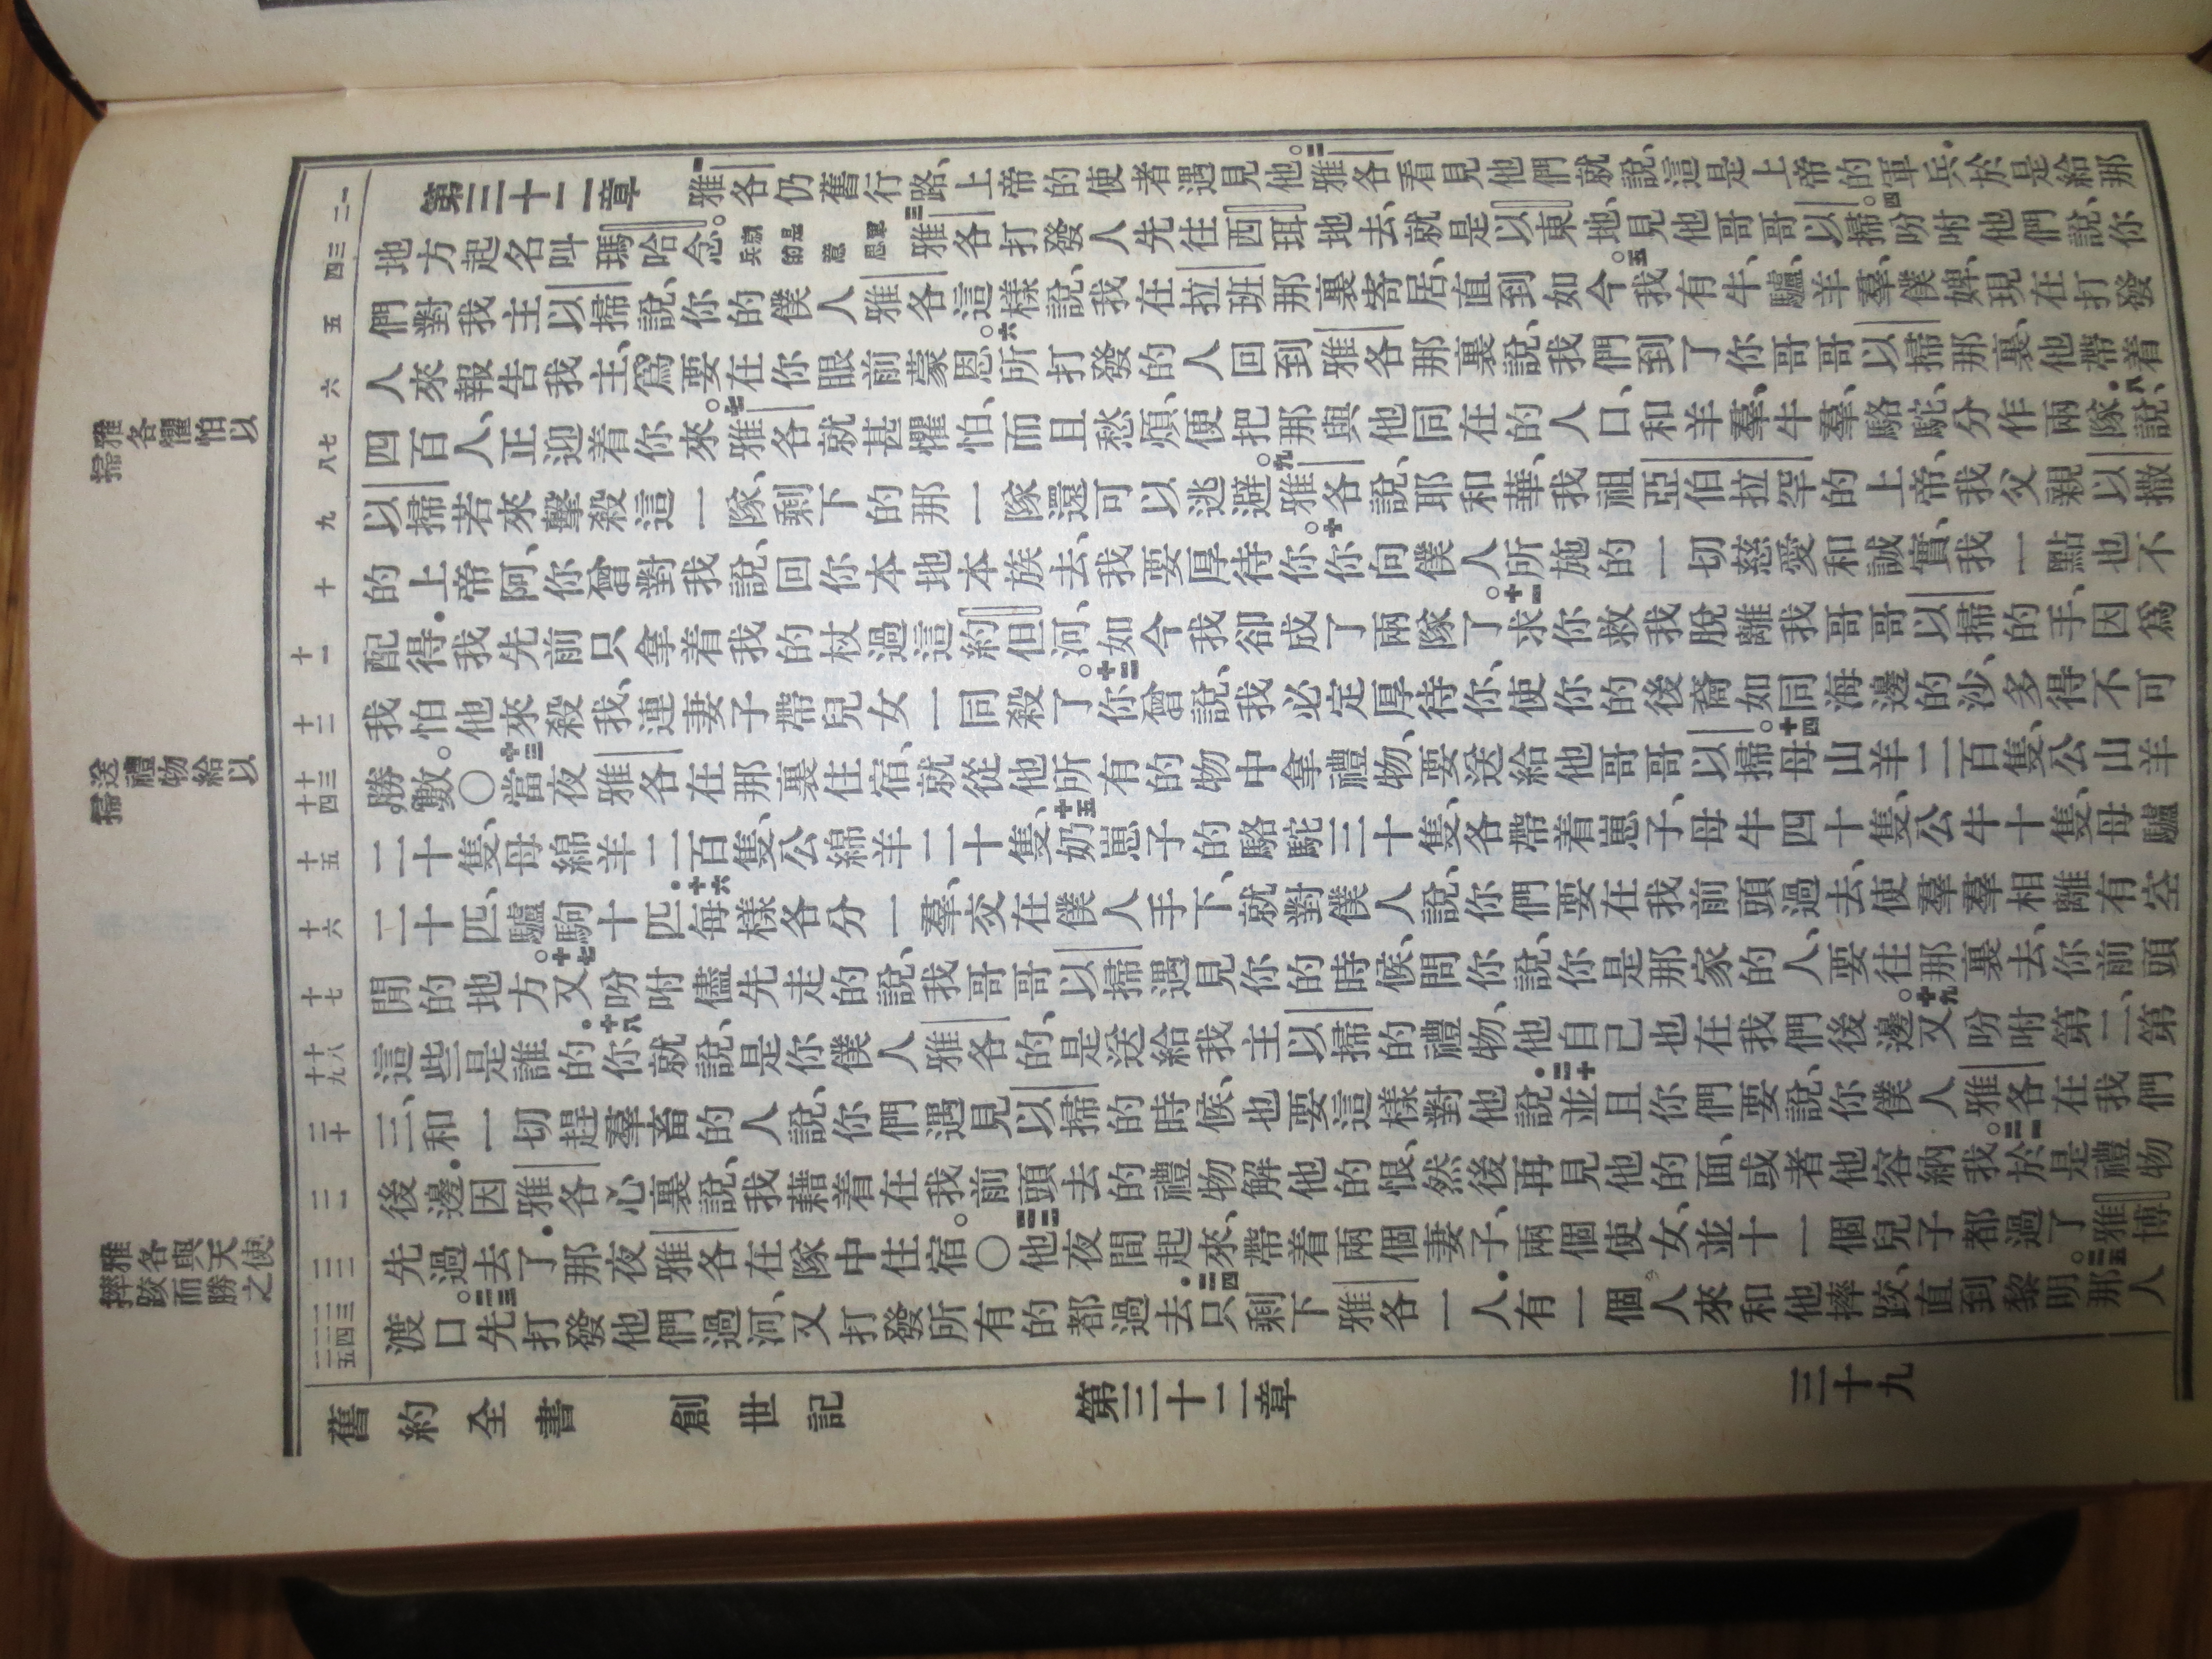 雅各懼怕以
掃
送禮物給以
掃
雅各與天使
摔跤而勝之
一
二
三
四
五
六
七
八
九
十
十一
十二
十三
十四
十五
十六
十七
十八
十九
二十
二一
二二
二三
二四
二五
第三十二章 一雅各仍舊行路、上帝的使者遇見他。二雅各看見他們就說、這是上帝的軍兵、於是給那
地方起名叫瑪哈念。就是軍兵的意思 三雅各打發人先往西珥地去、就是以東地、見他哥哥以掃。四吩咐他們說、你
們對我主以掃說、你的僕人雅各這樣說、我在拉班那裏寄居、直到如今。五我有牛、驢、羊羣、僕婢、現在打發
人來報告我主、爲要在你眼前蒙恩。六所打發的人回到雅各那裏說、我們到了你哥哥以掃那裏、他帶着
四百人、正迎着你來。七雅各就甚懼怕、而且愁煩、便把那與他同在的人口、和羊羣、牛羣、駱駝、分作兩隊．八說、
以掃若來擊殺這一隊、剩下的那一隊還可以逃避。九雅各說、耶和華、我祖亞伯拉罕的上帝、我父親以撒
的上帝阿、你曾對我說、回你本地本族去、我要厚待你。十你向僕人所施的一切慈愛和誠實、我一點也不
配得．我先前只拿着我的杖過這約但河、如今我卻成了兩隊了。十一求你救我脫離我哥哥以掃的手、因爲
我怕他來殺我、連妻子帶兒女一同殺了。十二你曾說、我必定厚待你、使你的後裔如同海邊的沙、多得不可
勝數。〇十三當夜雅各在那裏住宿、就從他所有的物中拿禮物、要送給他哥哥以掃。十四母山羊二百隻、公山羊
二十隻、母綿羊二百隻、公綿羊二十隻、十五奶崽子的駱駝三十隻、各帶着崽子、母牛四十隻、公牛十隻、母驢
二十匹、驢駒十匹．十六每樣各分一羣、交在僕人手下、就對僕人說、你們要在我前頭過去、使羣羣相離有空
閒的地方。十七又吩咐儘先走的說、我哥哥以掃遇見你的時候、問你說、你是那家的人、要往那裏去、你前頭
這些是誰的．十八你就說、是你僕人雅各的、是送給我主以掃的禮物、他自己也在我們後邊。十九又吩咐第二、第
三、和一切趕羣畜的人說、你們遇見以掃的時候、也要這樣對他說．二十並且你們要說、你僕人雅各在我們
後邊．因雅各心裏說、我藉着在我前頭去的禮物解他的恨、然後再見他的面、或者他容納我。二一於是禮物
先過去了．那夜雅各在隊中住宿。〇二二他夜間起來、帶着兩個妻子、兩個使女、並十一個兒子都過了雅博
渡口。二三先打發他們過河、又打發所有的都過去．二四只剩下雅各一人．有一個人來和他摔跤、直到黎明。二五那人
舊約全書 創世記 第三十二章 三十九